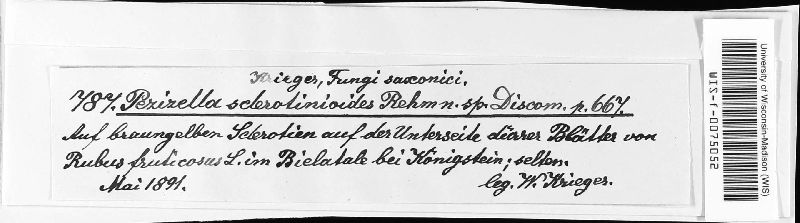 Krieger, Fungi saxonici.
787. Pezizella sclerotinioides Rehm n. sp. Discom. p. 667.
Auf braungelben Sclerotien auf der Unterseite dürrer Blätter von
Rubus fruticosus L. im Bielatale bei Königstein; selten.
Mai 1891.
leg. W. Krieger.
University of Wisconsin-Madison (WIS)
WIS-f-0075052